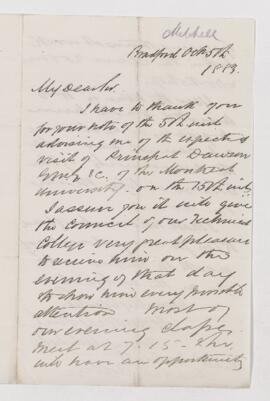 Mitchell
Bradford Oct 5th
1883.
My dear Sir
I have to thank you
for your note of the 5th inst
advising me of the expected
visit of Principal Dawson
&c. of the Montreal
University on the 15th inst
I assure you it will give
the Council of our Technical
College very great pleasure
to receive him on the
evening of that day
& to show him every possible
attention. Most of
our evening classes
meet at 7.15 & he
will have an opportunity